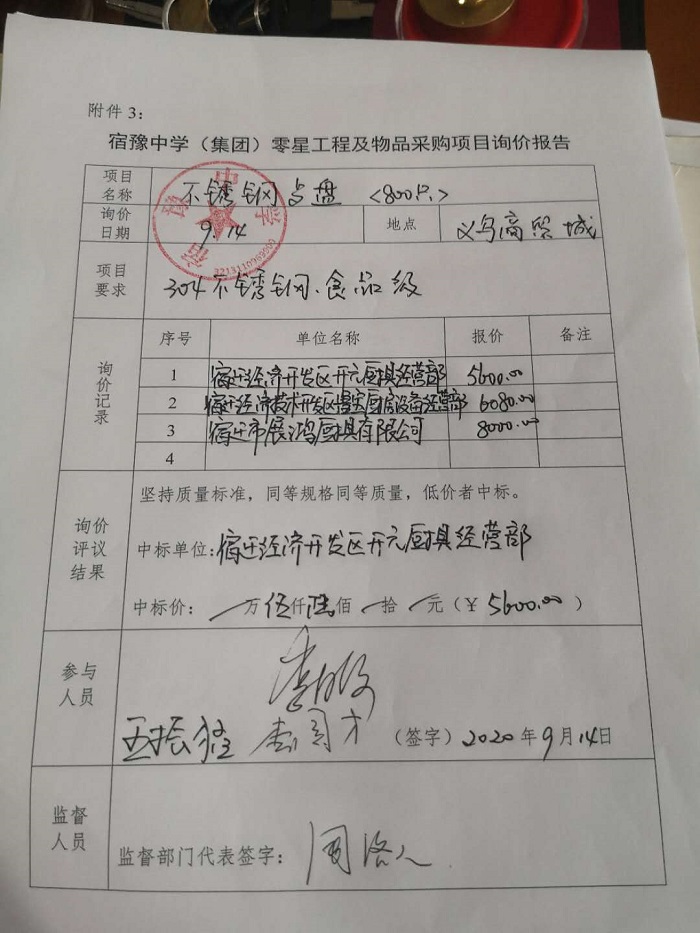 附件 3：
宿豫中学（集团）零星工程及物品采购项目询价报告
项目名称 不锈钢占盘 <800只>
询价日期 9.14 地点 义乌商贸城
项目要求 304不锈钢、食品级
询价记录
序号 单位名称 报价 备注
1 宿迁经济开发区开元厨具经营部 5600.00
2 宿迁经济技术开发区 厨房设备经营部 6080.00
3 宿迁市展鸿厨具有限公司 8000.00
4
询价评议结果
坚持质量标准，同等规格同等质量，低价者中标。
中标单位：宿迁经济开发区开元厨具经营部
中标价： 一万伍仟陆佰一拾一元（¥5600.00）
参与人员
（签字）2020年9月14日
监督人员
监督部门代表签字：